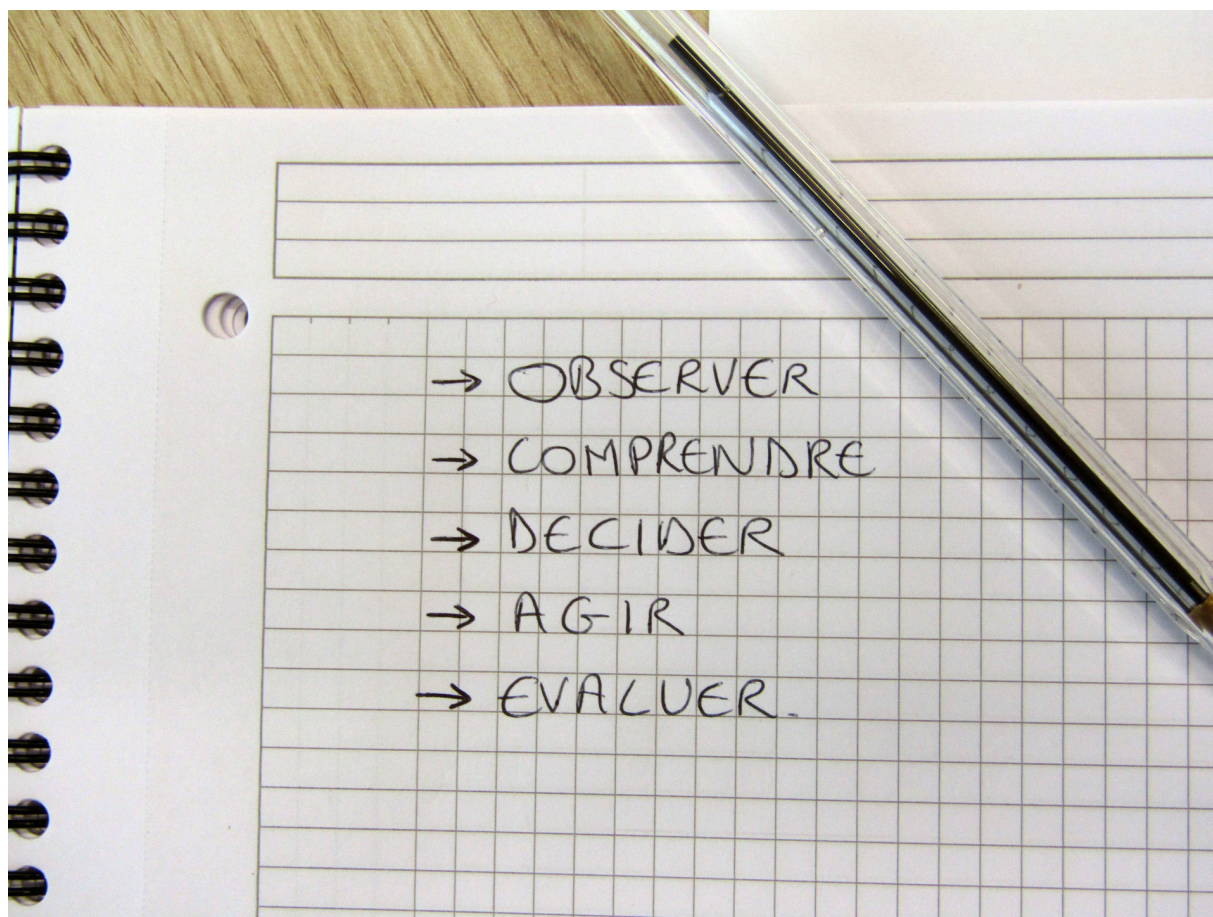 → OBSERVER
→ COMPRENDRE
→ DECIDER
→ AGIR
→ EVALUER.